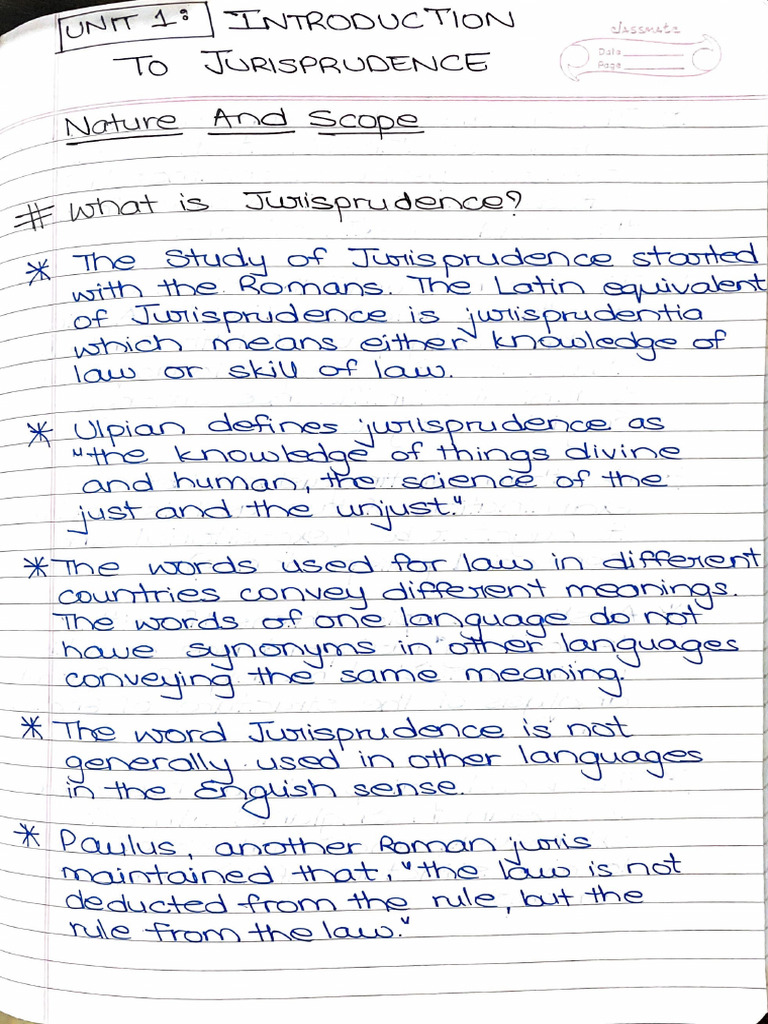 UNIT 1: INTRODUCTION
TO JURISPRUDENCE
classmate
Date
Page
Nature And Scope
# What is Jurisprudence?
* The Study of Jurisprudence started
with the Romans. The Latin equivalent
of Jurisprudence is jurisprudentia
which means either knowledge of
law or skill of law.
* Ulpian defines jurisprudence as
"the knowledge of things divine
and human, the science of the
just and the unjust."
* The words used for law in different
countries convey different meanings.
The words of one language do not
have synonyms in other languages
conveying the same meaning.
* The word Jurisprudence is not
generally used in other languages
in the English sense.
* Paulus, another Roman juris
maintained that, "the law is not
deducted from the rule, but the
rule from the law."